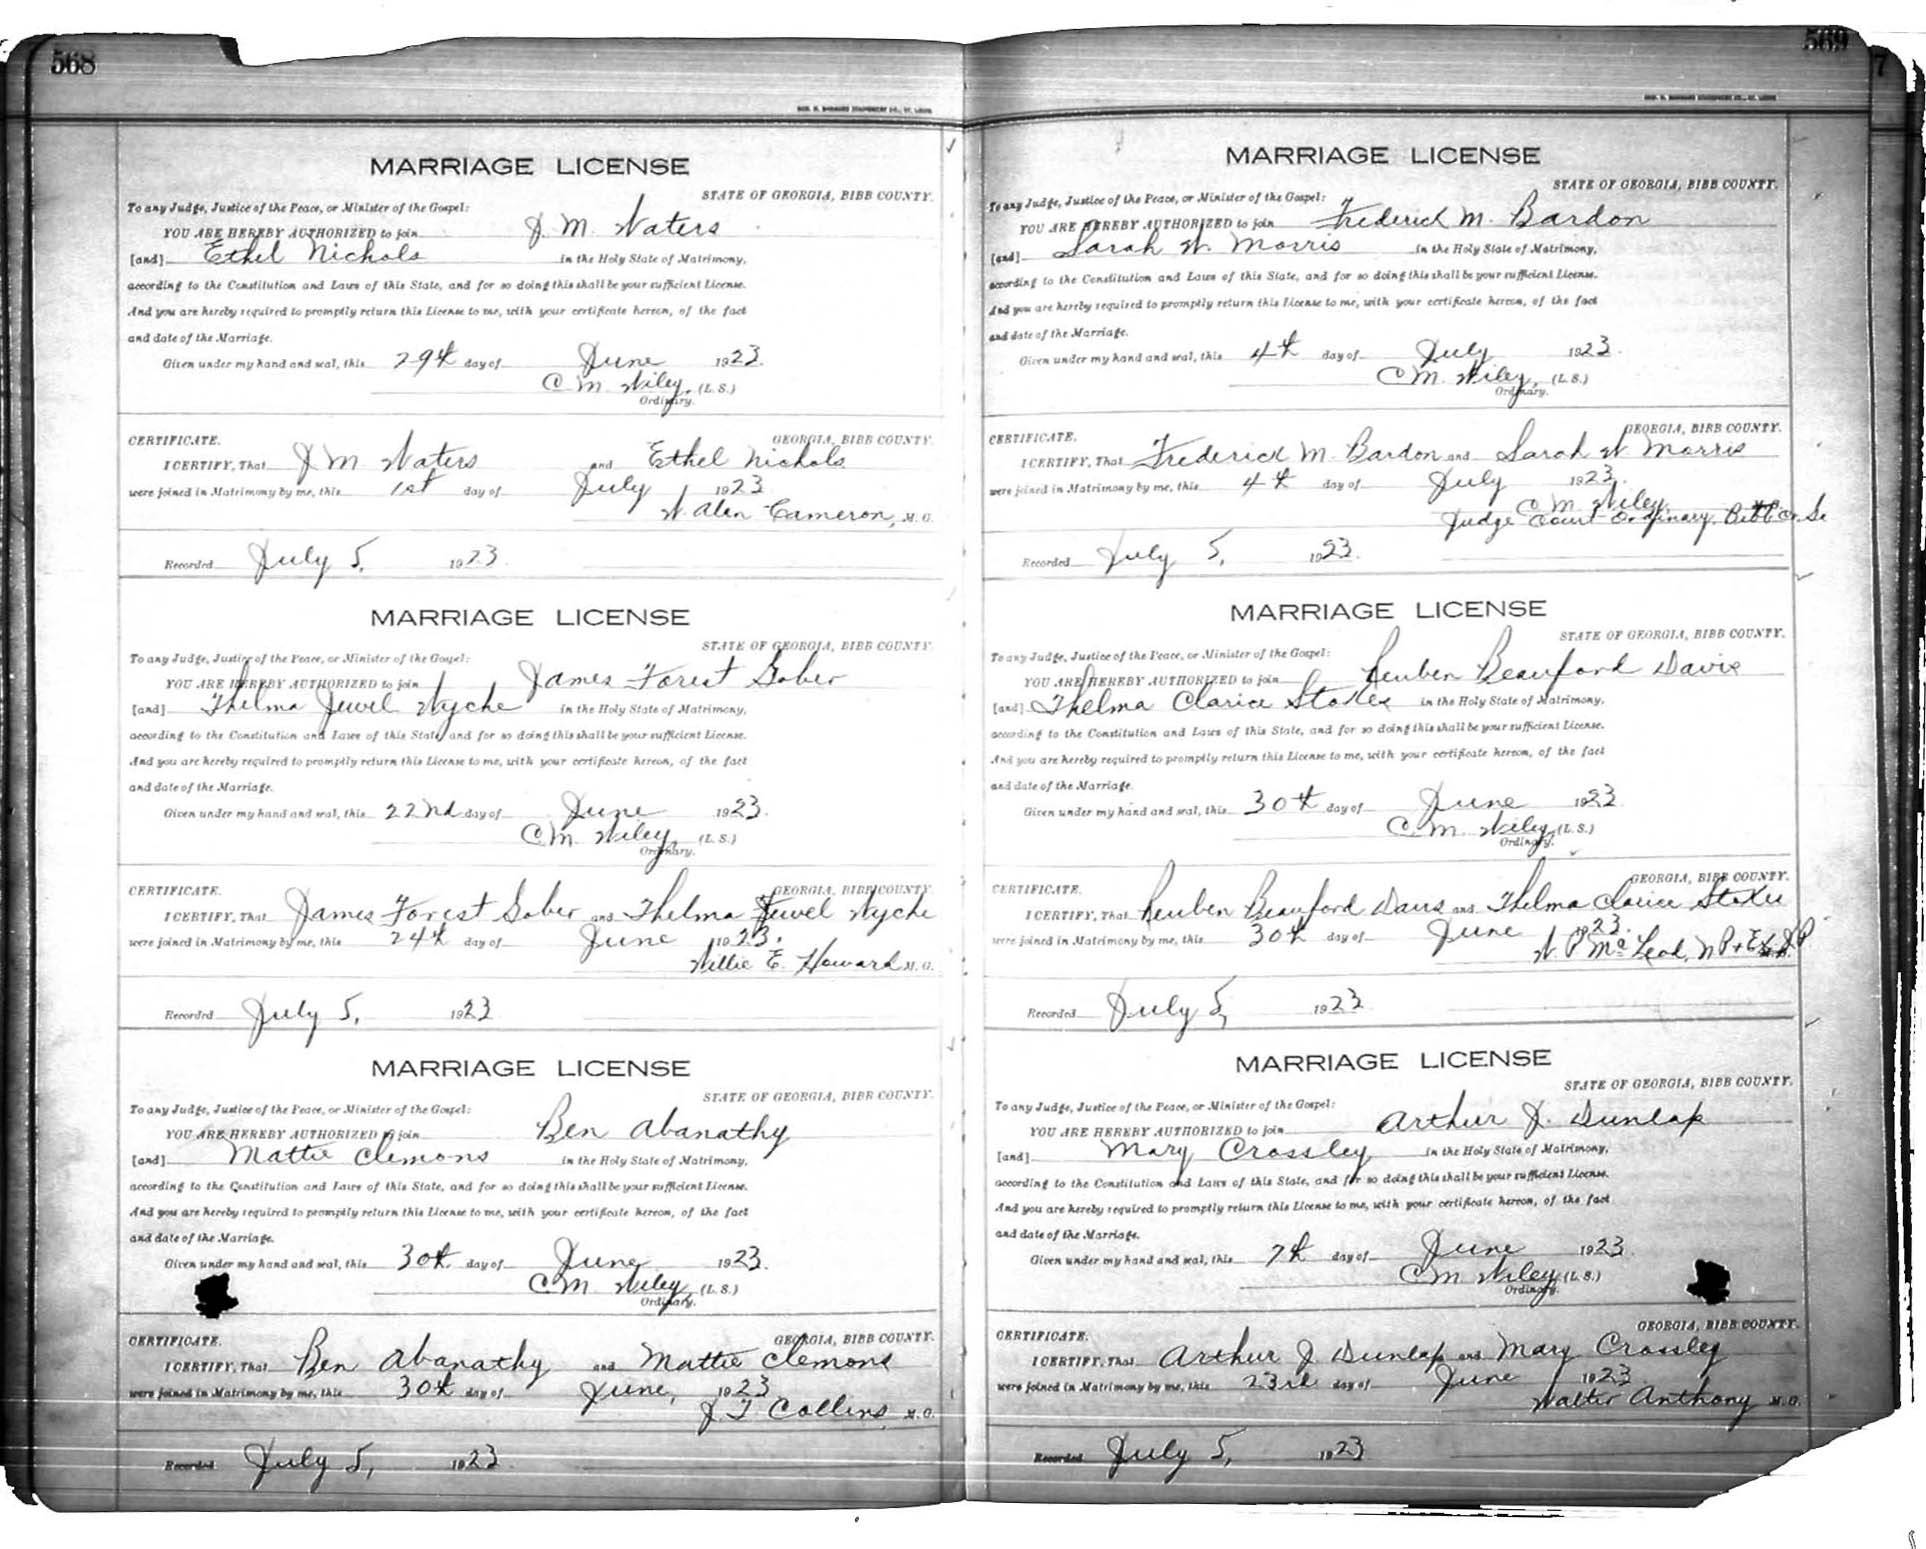 568
MARRIAGE LICENSE
STATE OF GEORGIA, BIBB COUNTY.
To any Judge, Justice of the Peace, or Minister of the Gospel:
YOU ARE HEREBY AUTHORIZED to join J. M. Waters
[and] Ethel Nichols in the Holy State of Matrimony,
according to the Constitution and Laws of this State, and for so doing this shall be your sufficient License.
And you are hereby required to promptly return this License to me, with your certificate hereon, of the fact
and date of the Marriage.
Given under my hand and seal, this 29th day of June 1923.
C. M. Wiley, (L. S.)
Ordinary.
CERTIFICATE. GEORGIA, BIBB COUNTY.
I CERTIFY, That J M Waters and Ethel Nichols
were joined in Matrimony by me, this 1st day of July 1923
W. Alen Cameron, M. G.
Recorded July 5, 1923.
MARRIAGE LICENSE
STATE OF GEORGIA, BIBB COUNTY.
To any Judge, Justice of the Peace, or Minister of the Gospel:
YOU ARE HEREBY AUTHORIZED to join James Forest Gober
[and] Thelma Jewel Wyche in the Holy State of Matrimony,
according to the Constitution and Laws of this State, and for so doing this shall be your sufficient License.
And you are hereby required to promptly return this License to me, with your certificate hereon, of the fact
and date of the Marriage.
Given under my hand and seal, this 22nd day of June 1923.
C. M. Wiley, (L. S.)
Ordinary.
CERTIFICATE. GEORGIA, BIBB COUNTY.
I CERTIFY, That James Forest Gober and Thelma Jewel Wyche
were joined in Matrimony by me, this 24th day of June 1923.
Willie E. Howard M. G.
Recorded July 5, 1923
MARRIAGE LICENSE
STATE OF GEORGIA, BIBB COUNTY.
To any Judge, Justice of the Peace, or Minister of the Gospel:
YOU ARE HEREBY AUTHORIZED to join Ben Abanathy
[and] Mattie Clemons in the Holy State of Matrimony,
according to the Constitution and Laws of this State, and for so doing this shall be your sufficient License.
And you are hereby required to promptly return this License to me, with your certificate hereon, of the fact
and date of the Marriage.
Given under my hand and seal, this 30th day of June 1923.
C. M. Wiley, (L. S.)
Ordinary.
CERTIFICATE. GEORGIA, BIBB COUNTY.
I CERTIFY, That Ben Abanathy and Mattie Clemons
were joined in Matrimony by me, this 30th day of June, 1923
J T Collins, M. G.
Recorded July 5, 1923.
569
7
MARRIAGE LICENSE
STATE OF GEORGIA, BIBB COUNTY.
To any Judge, Justice of the Peace, or Minister of the Gospel:
YOU ARE HEREBY AUTHORIZED to join Frederick M. Bardon
[and] Sarah W. Morris in the Holy State of Matrimony,
according to the Constitution and Laws of this State, and for so doing this shall be your sufficient License.
And you are hereby required to promptly return this License to me, with your certificate hereon, of the fact
and date of the Marriage.
Given under my hand and seal, this 4th day of July 1923.
C. M. Wiley, (L. S.)
Ordinary.
CERTIFICATE. GEORGIA, BIBB COUNTY.
I CERTIFY, That Frederick M. Bardon and Sarah W Morris
were joined in Matrimony by me, this 4th day of July 1923.
C. M. Wiley,
Judge Court Ordinary, Bibb Co. Ga
Recorded July 5, 1923.
MARRIAGE LICENSE
STATE OF GEORGIA, BIBB COUNTY.
To any Judge, Justice of the Peace, or Minister of the Gospel:
YOU ARE HEREBY AUTHORIZED to join Reuben Beauford Davis
[and] Thelma Clarice Stokes in the Holy State of Matrimony,
according to the Constitution and Laws of this State, and for so doing this shall be your sufficient License.
And you are hereby required to promptly return this License to me, with your certificate hereon, of the fact
and date of the Marriage.
Given under my hand and seal, this 30th day of June 1923
C. M. Wiley, (L. S.)
Ordinary.
CERTIFICATE. GEORGIA, BIBB COUNTY.
I CERTIFY, That Reuben Beauford Davis and Thelma Clarice Stokes
were joined in Matrimony by me, this 30th day of June 1923.
W. P. McLeod, N P + Ex J P
Recorded July 5, 1923
MARRIAGE LICENSE
STATE OF GEORGIA, BIBB COUNTY.
To any Judge, Justice of the Peace, or Minister of the Gospel:
YOU ARE HEREBY AUTHORIZED to join Arthur J. Dunlap
[and] Mary Crossley in the Holy State of Matrimony,
according to the Constitution and Laws of this State, and for so doing this shall be your sufficient License.
And you are hereby required to promptly return this License to me, with your certificate hereon, of the fact
and date of the Marriage.
Given under my hand and seal, this 7th day of June 1923.
C M Wiley (L. S.)
Ordinary.
CERTIFICATE. GEORGIA, BIBB COUNTY.
I CERTIFY, That Arthur J. Dunlap and Mary Crossley
were joined in Matrimony by me, this 23rd day of June 1923.
Walter Anthony M. G.
Recorded July 5, 1923